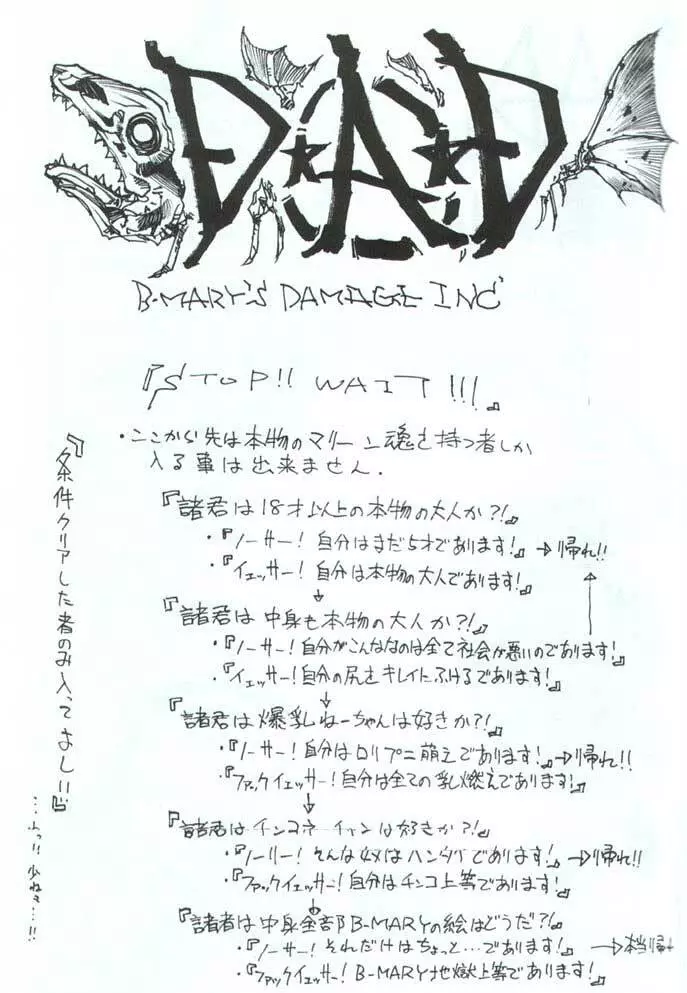 D★A★D
B-MARY'S DAMAGE INC
『STOP!! WAIT!!!』
・ここから先は本物のマリーン魂を持つ者しか
入る事は出来ません.
『諸君は18才以上の本物の大人か?!』
・『ノーサー!自分はまだ5才であります!』→帰れ!!
・『イエッサー!自分は本物の大人であります!』
↓
『諸君は中身も本物の大人か?!』
・『ノーサー!自分がこんななのは全て社会が悪いのであります!』
・『イエッサー!自分の尻をキレイにふけるであります!』
↓
『諸君は爆乳ねーちゃんは好きか?!』
・『ノーサー!自分はロリプニ萌えであります!』→帰れ!!
・『ファックイエッサー!自分は全ての乳燃えであります!』
↓
『諸君はチンコネーチャンは好きか?!』
・『ノーサー!そんな奴はハンタイであります!』→帰れ!!
・『ファックイエッサー!自分はチンコ上等であります!』
↓
『諸君は中身全部B-MARYの絵はどうだ?!』
・『ノーサー!それだけはちょっと…であります!』→本当帰れ
・『ファックイエッサー!B-MARY地獄上等であります!』
『条件クリアした者のみ入ってよし!!』
…!! 少ねぇ…!!